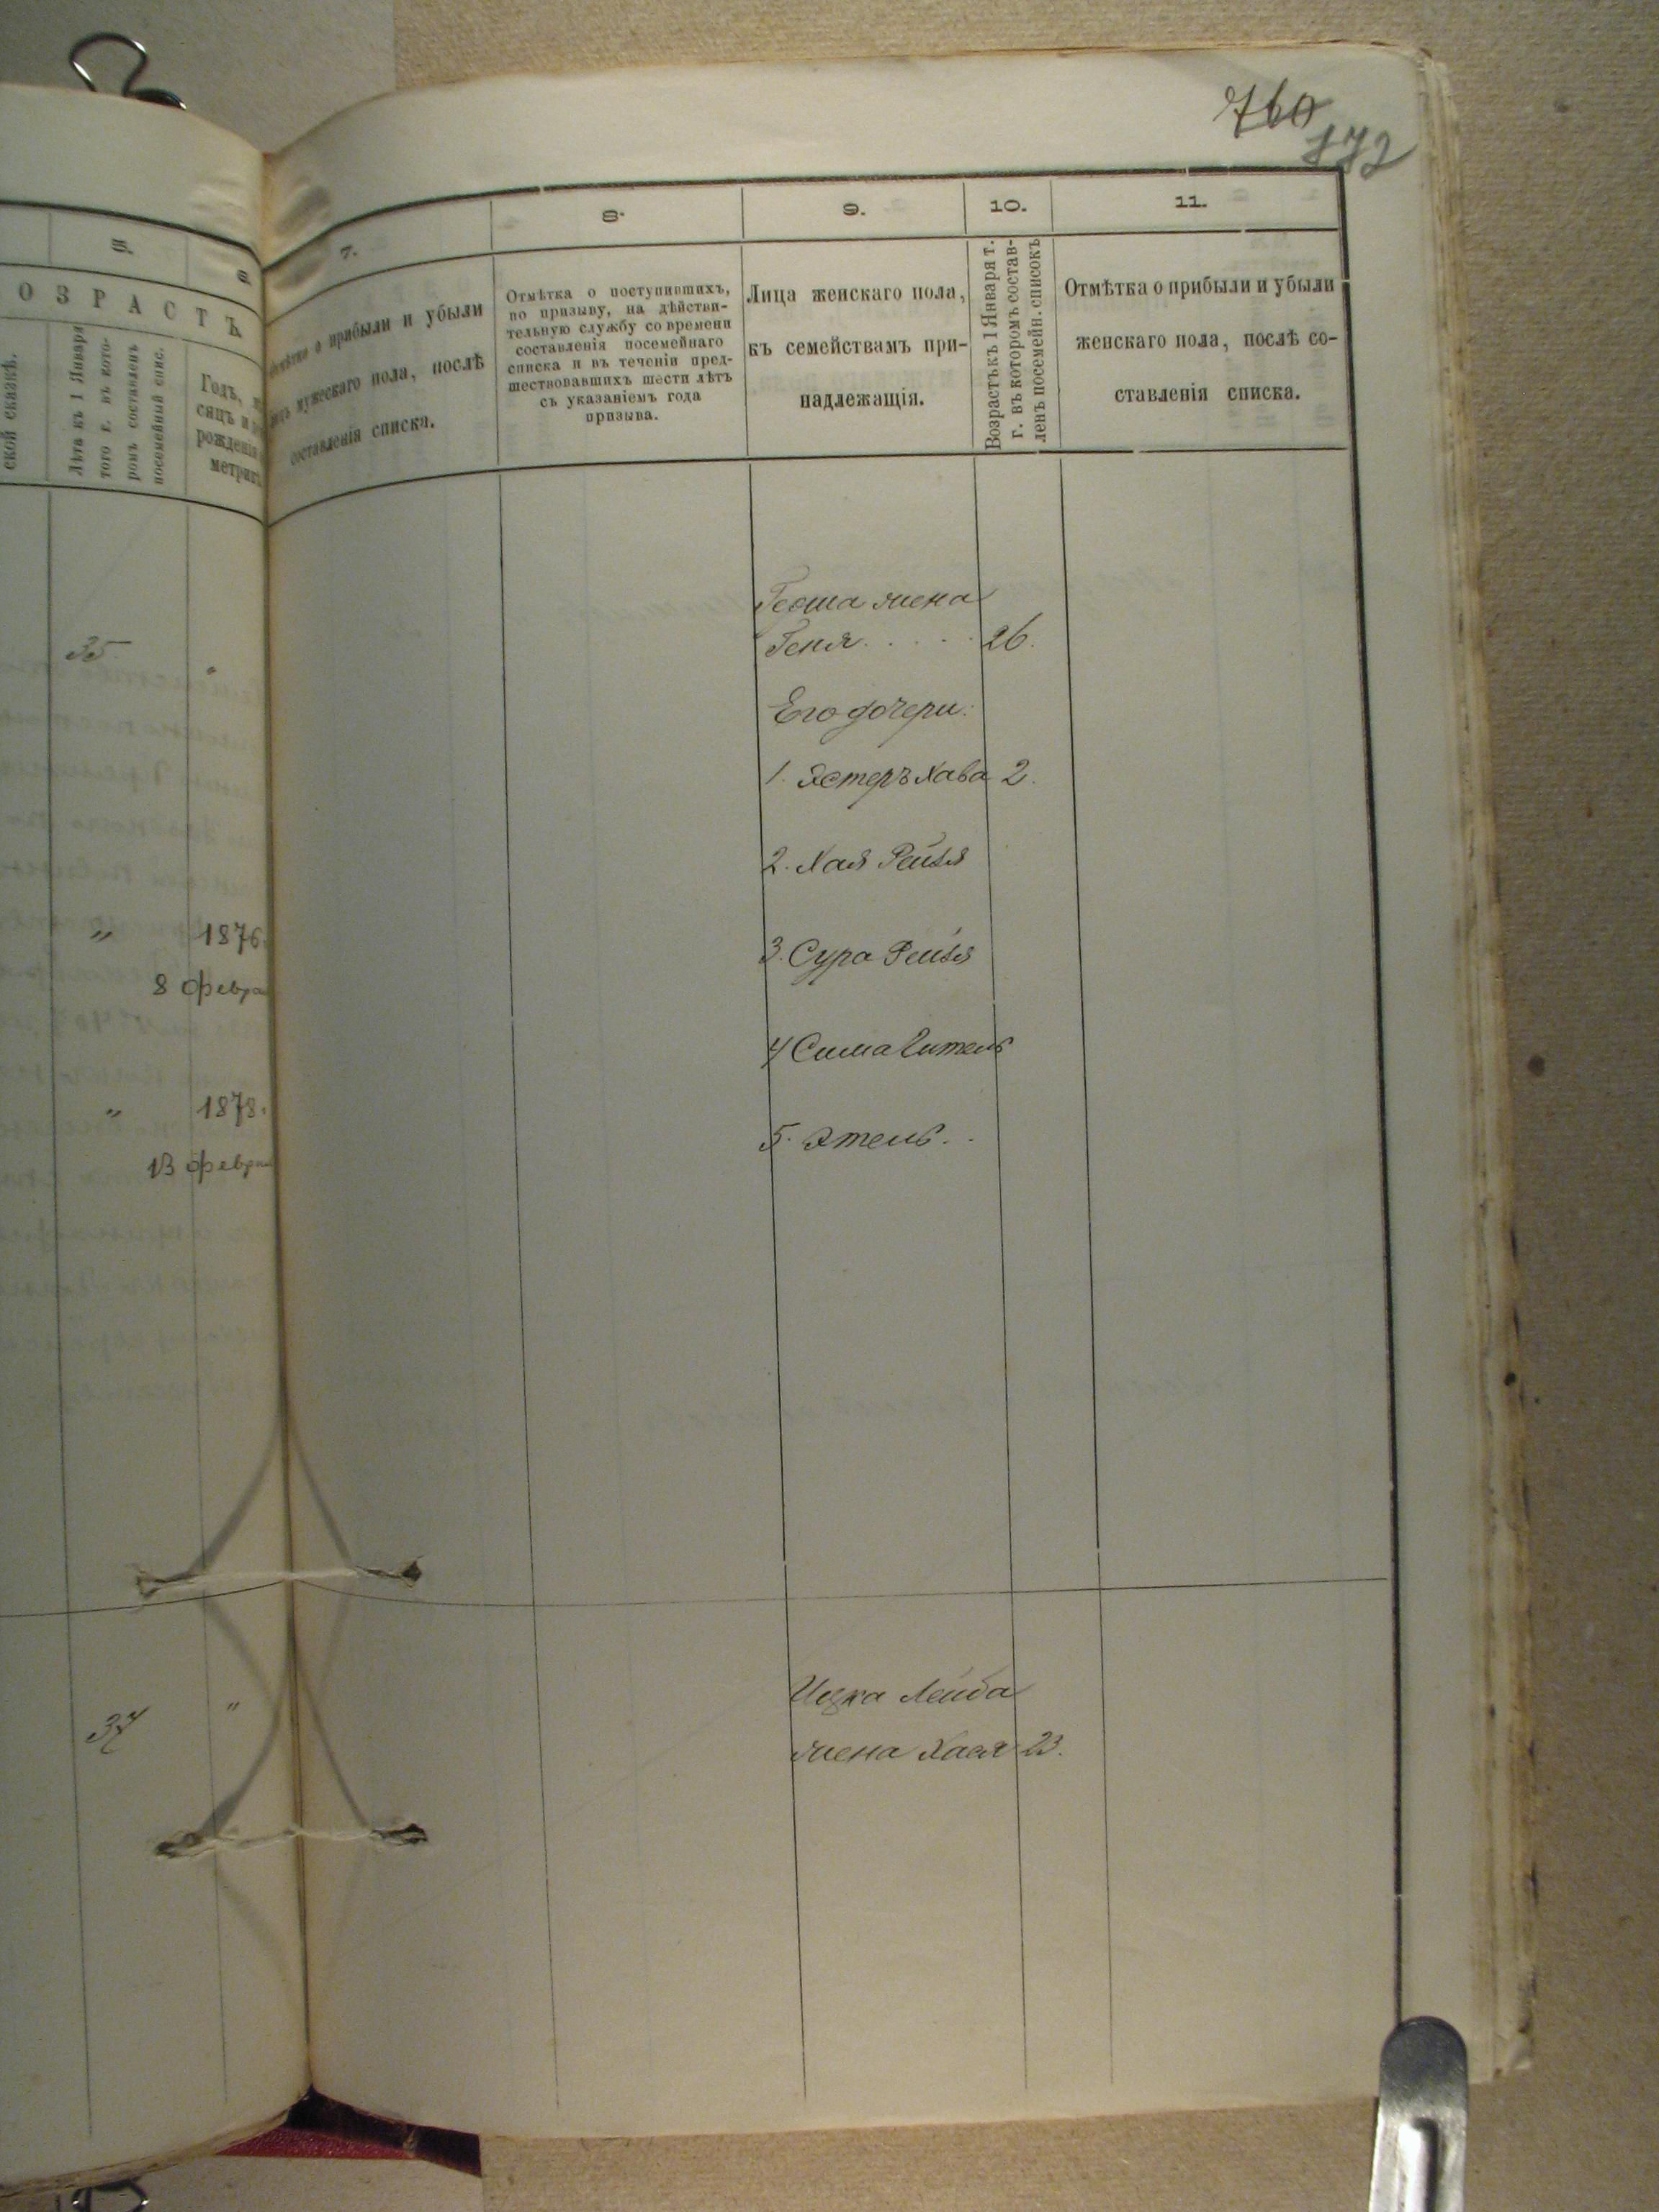 760
172
5.
6
ОЗРАСТЪ
ской сказкѣ.
Лѣта къ 1 Января
того г. въ кото-
ромъ составленъ
посемейный спис.
Годъ, мѣ
сяцъ и
рожденія
метрик
35
"
"
1876.
8 февра
"
1878.
13 февра
37
"
7.
8.
9.
10.
11.
о прибыли и убыли
мужескаго пола, послѣ
составленія списка.
Отмѣтка о поступившихъ,
по призыву, на дѣйстви-
тельную службу со времени
составленія посемейнаго
списка и въ теченіи пред-
шествовавшихъ шести лѣтъ
съ указаніемъ года
призыва.
Лица женскаго пола,
къ семействамъ при-
надлежащія.
Возрастъ къ 1 Января т.
г. въ которомъ состав-
ленъ посемейн. списокъ
Отмѣтка о прибыли и убыли
женскаго пола, послѣ со-
ставленія списка.
жена
Геня . . . . . 26.
Его дочери:
1. Эстеръ Хава 2.
2. Хая Рейзя
3. Сура Рейзя
4 Сима Гитель
5. Этель . .
Ицка Лейба
жена Хая 23.